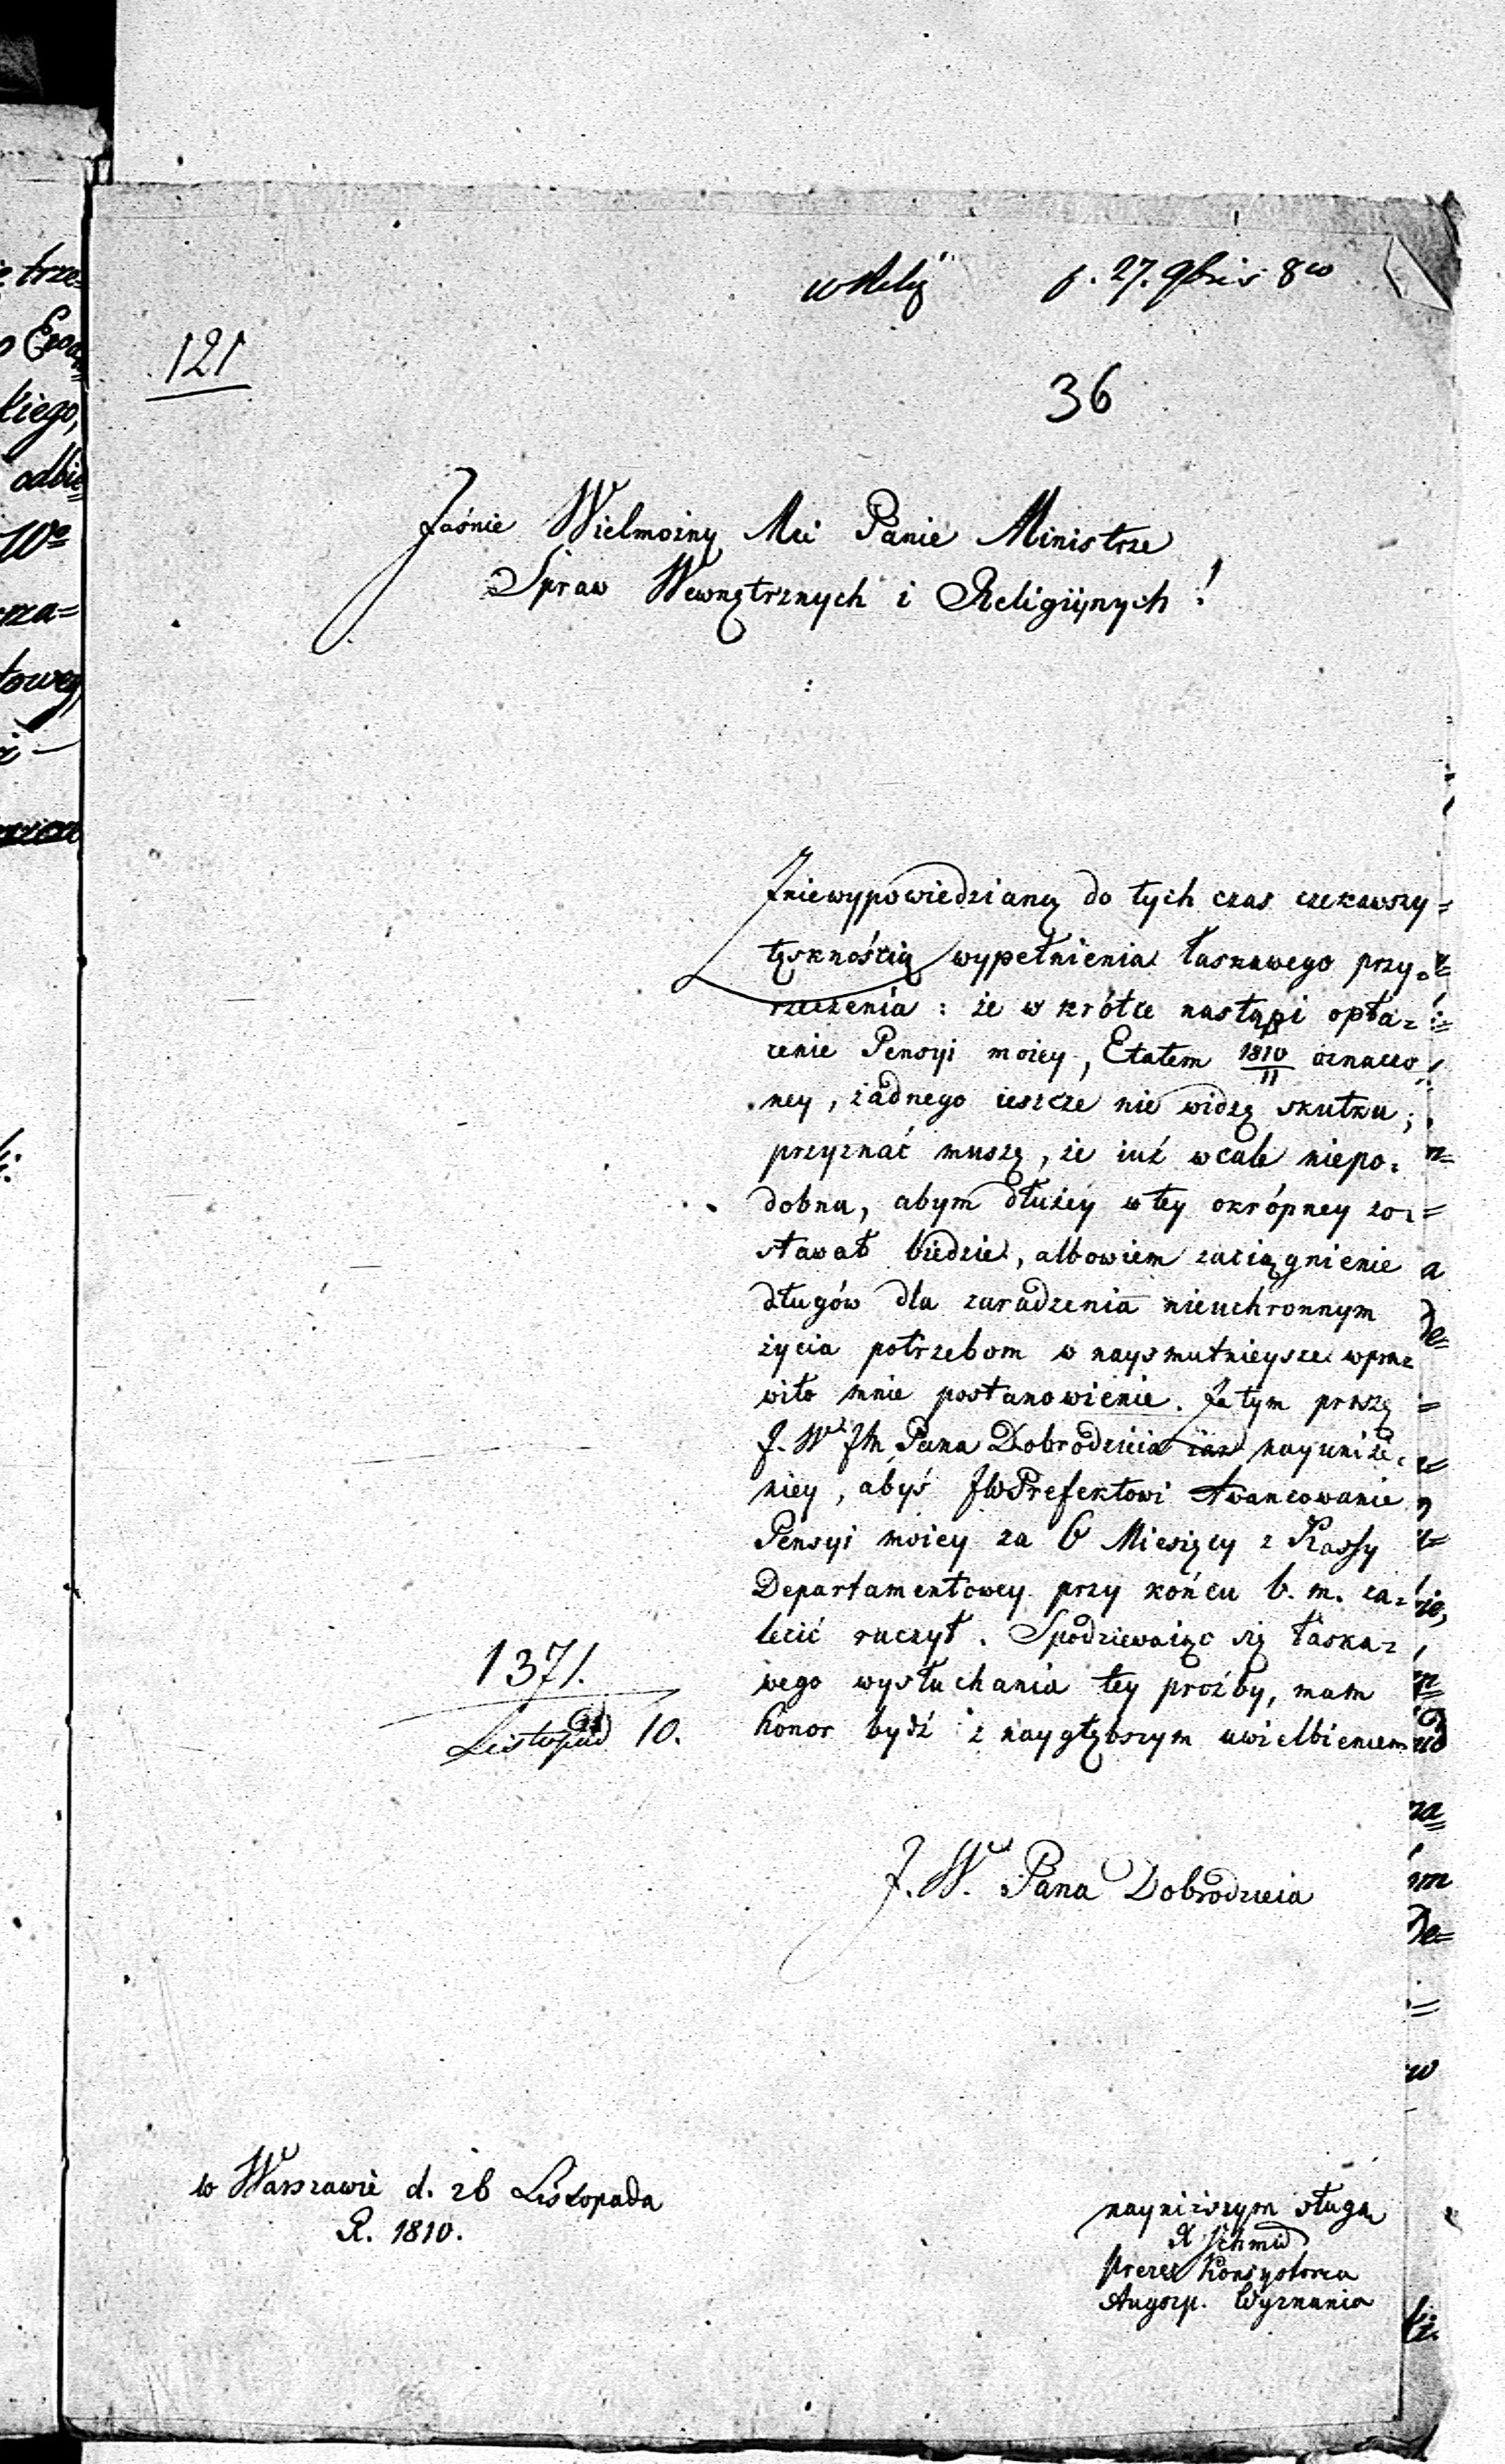 w Relig p. 27. 9bris 8
121
36
Jaśnie Wielmożny Mci Panie Ministrze
Spraw Wewnętrznych i Religiynych!
Zniewypowiedzianą do tych czas czekawszy=
tęsknością wypełnienia łaskawego przy=
rzeczenia: że w krótce nastąpi opła=
cenie Pensyi moiey, Etatem 1810/11 oznaczo
ney, żadnego ieszcze nie widzę skutku;
przyznać muszę, że iuż wcale niepo=
dobna, abym dłużey w tey okrópney zo=
stawał biedzie, albowiem zaciągnienie
długów dla zaradzenia nieuchronnym
życia potrzebom w naysmutnieysze wpra=
wiło mnie postanowienie. Zatym proszę
J. W. JM Pana Dobrodzieia nayuniże=
niey, abyś JWPrefektowi Awancowanie
Pensyi moiey za 6 Miesięcy z Kassy
Departamentowey przy końcu b. m. za=
lecić raczył. Spodziewaiąc się łaska=
wego wysłuchania tey proźby, mam
honor bydź z naygłębszym uwielbieniem
1371.
Listopad 10.
J. W. Pana Dobrodzieia
w Warszawie d. 26 Listopada
R. 1810.
nayniższym sługą
X Schmid
Prezes Konsystorza
Augszp. Wyznania